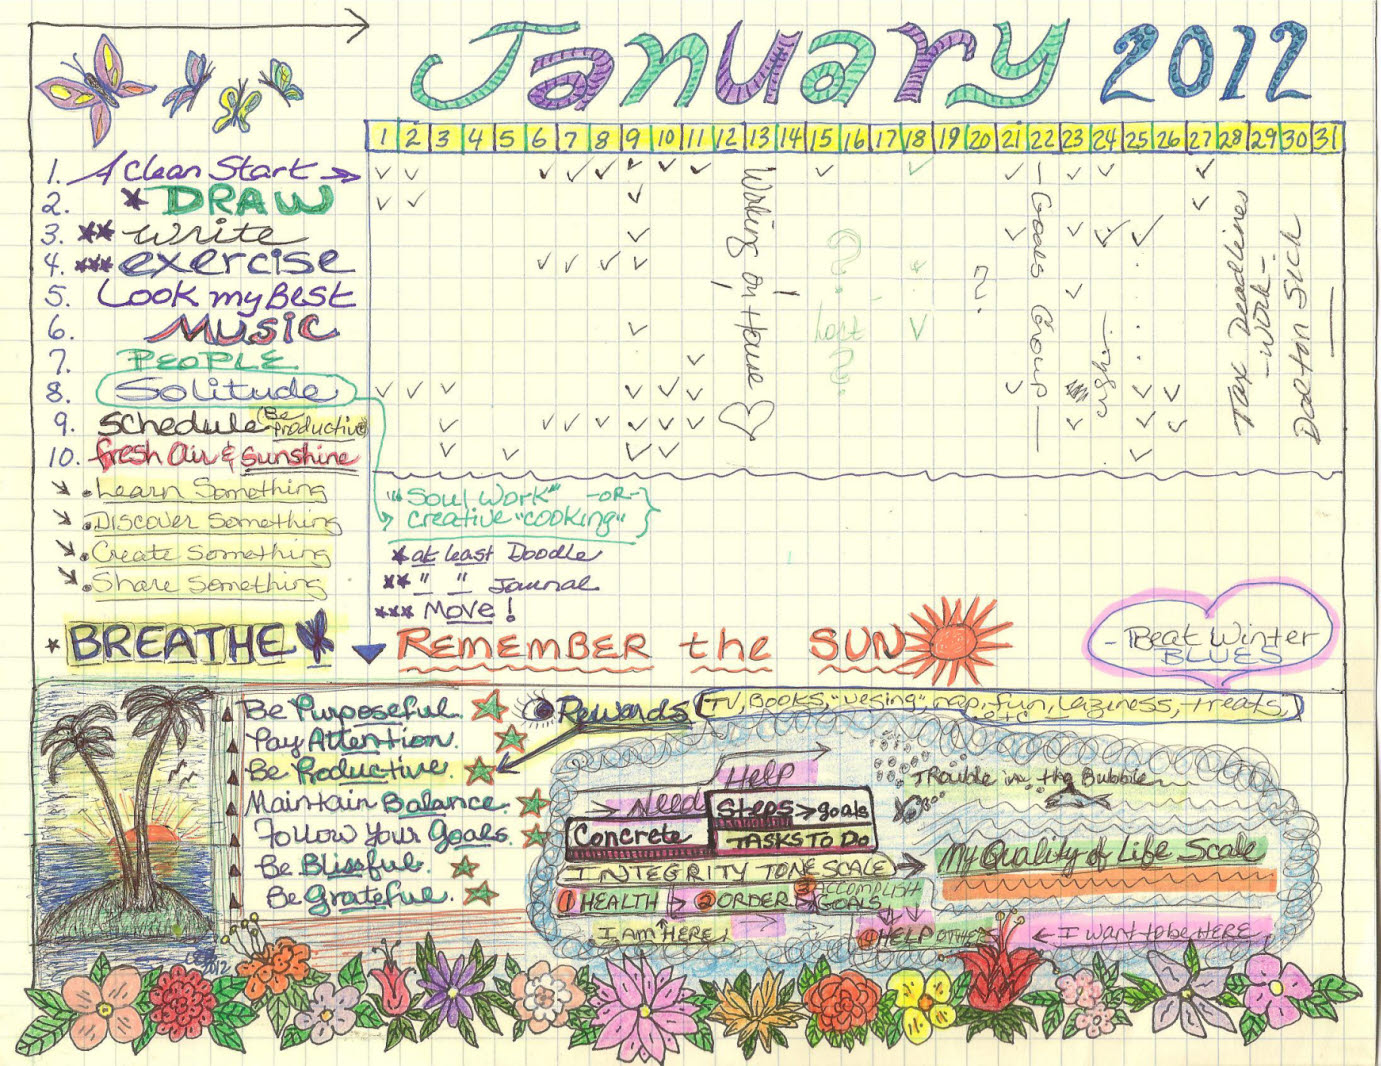 January 2012
1 2 3 4 5 6 7 8 9 10 11 12 13 14 15 16 17 18 19 20 21 22 23 24 25 26 27 28 29 30 31
1. A Clean Start →
2. * DRAW
3. ** write
4. *** exercise
5. Look my Best
6. Music
7. PEOPLE
8. Solitude
9. Schedule (Be Productive)
10. fresh Air & Sunshine
. Learn Something
. Discover Something
. Create Something
. Share Something
* BREATHE
Working on House
? lost ?
?
— Goals Group —
ugh
Tax Deadlines
- Work -
Dalton Sick
"Soul Work" -OR-
creative "cooking"
* at least Doodle
** " " Journal
*** Move!
REMEMBER the SUN
- Beat Winter
BLUES
Be Purposeful.
Pay Attention.
Be Productive.
Maintain Balance.
Follow Your Goals.
Be Blissful.
Be Grateful.
Rewards (TV, Books, "vegging", nap, fun, Laziness, treats,
etc
Help
Need
Steps > goals
Concrete
TASKS TO DO
Trouble in the Bubble
INTEGRITY TONE SCALE →
My Quality of Life Scale
1 HEALTH
2 ORDER
3 ACCOMPLISH
GOALS
I AM HERE
HELP OTHERS
← I want to be HERE
2012